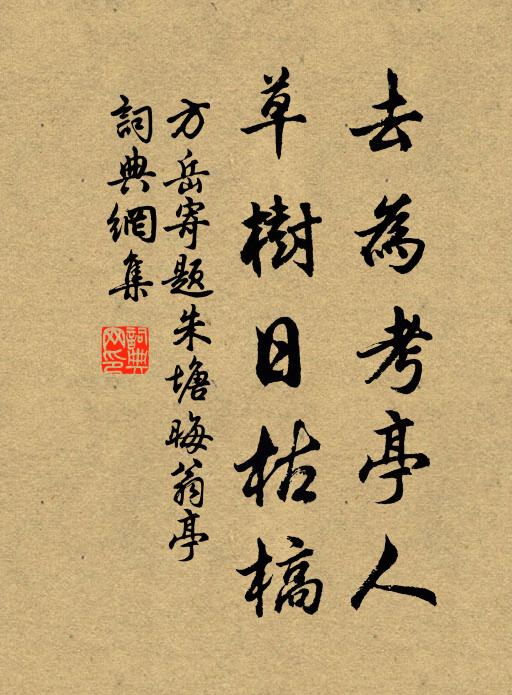 去為考亭人
草樹日枯槁
方岳寄题朱塘晦翁亭
詞典網集
詞典网印